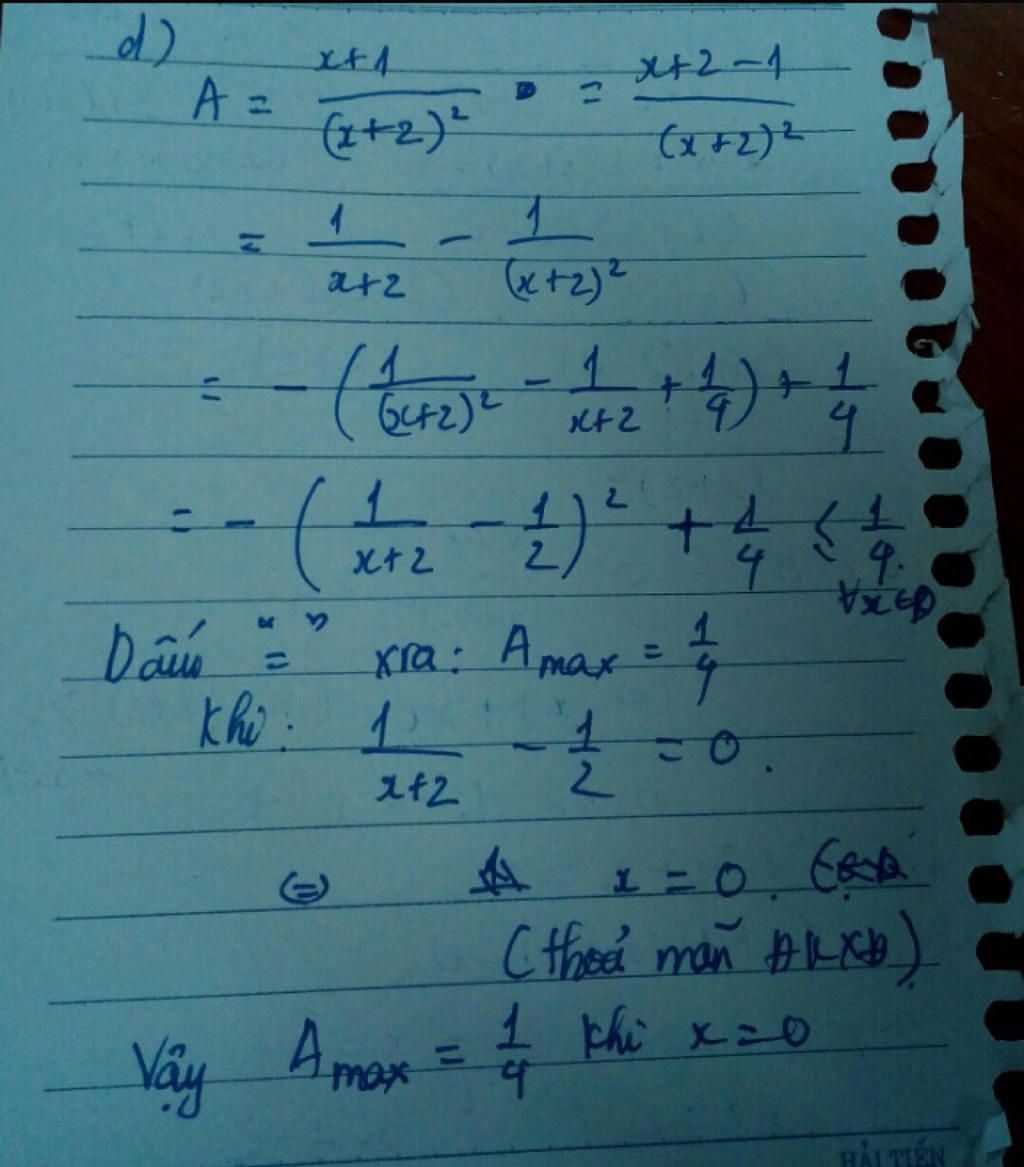 d)
A = \frac{x+1}{(x+2)^2} = \frac{x+2-1}{(x+2)^2}
= \frac{1}{x+2} - \frac{1}{(x+2)^2}
= -\left(\frac{1}{(x+2)^2} - \frac{1}{x+2} + \frac{1}{4}\right) + \frac{1}{4}
= -\left(\frac{1}{x+2} - \frac{1}{2}\right)^2 + \frac{1}{4} ≤ \frac{1}{4}.
∀x ∈ Đ
Dấu "=" xra: A max = \frac{1}{4}
Khi: \frac{1}{x+2} - \frac{1}{2} = 0.
(=) x = 0.
(thoả mãn ĐKXĐ)
Vậy A max = \frac{1}{4} khi x = 0
HẢI TIẾN